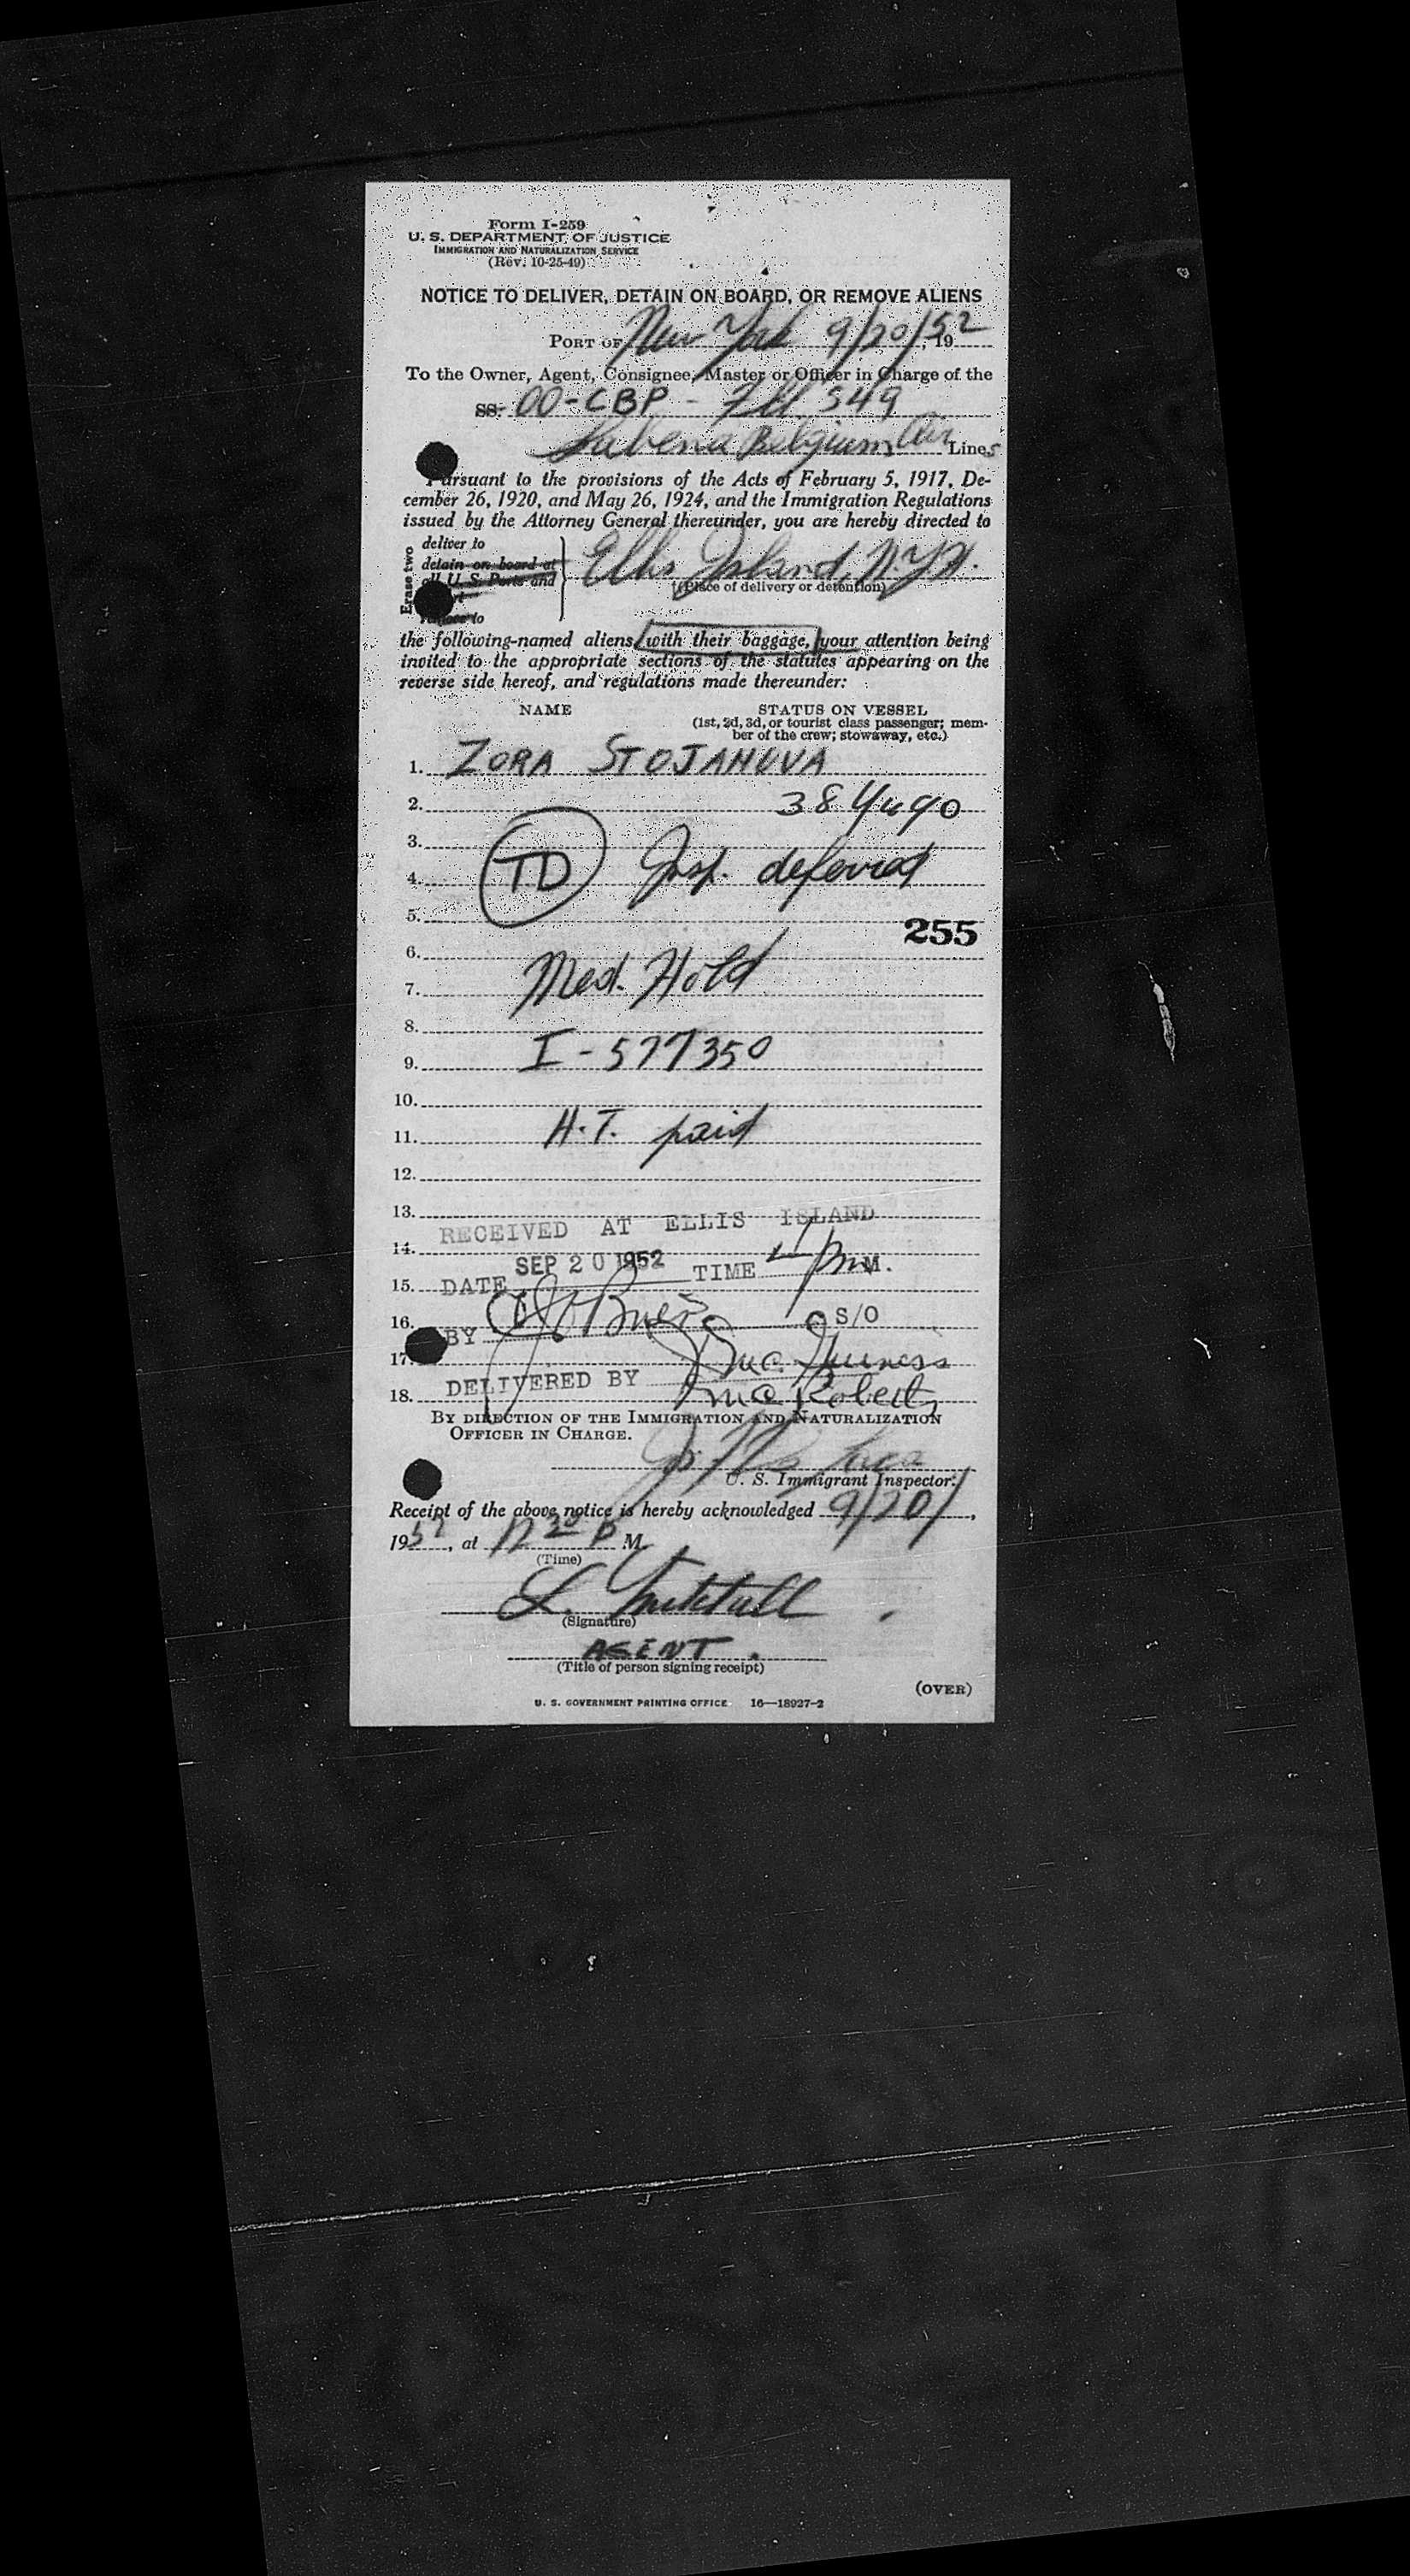 Form I-259
U. S. DEPARTMENT OF JUSTICE
IMMIGRATION AND NATURALIZATION SERVICE
(Rev. 10-25-49)
NOTICE TO DELIVER, DETAIN ON BOARD, OR REMOVE ALIENS
PORT OF New York 9/20/52, 19
To the Owner, Agent, Consignee, Master or Officer in Charge of the
SS. OO-CBP - Flt 549
Sabena Belgium Air Lines
Pursuant to the provisions of the Acts of February 5, 1917, De-
cember 26, 1920, and May 26, 1924, and the Immigration Regulations
issued by the Attorney General thereunder, you are hereby directed to
Erase two
deliver to
detain on board at
all U. S. Ports and
remove to
Ellis Island, N.Y.H.
(Place of delivery or detention)
the following-named aliens, with their baggage, your attention being
invited to the appropriate sections of the statutes appearing on the
reverse side hereof, and regulations made thereunder:
NAME STATUS ON VESSEL
(1st, 2d, 3d, or tourist class passenger; mem-
ber of the crew; stowaway, etc.)
1. ZORA STOJANOVA
2. 38 Yugo
3.
4. TD Insp. deferred
5.
255
6.
7. Med. Hold
8.
9. I-577350
10.
11. H.T. paid
12.
13.
RECEIVED AT ELLIS ISLAND
14.
DATE SEP 20 1952 TIME 4 PM M.
15.
16.
BY S/O
17. McGuiness
DELIVERED BY McRoberts
18.
BY DIRECTION OF THE IMMIGRATION AND NATURALIZATION
OFFICER IN CHARGE.
U. S. Immigrant Inspector.
Receipt of the above notice is hereby acknowledged 9/20/,
1952, at 12 20 P M.
(Time)
L.
(Signature)
AGENT.
(Title of person signing receipt)
(OVER)
U. S. GOVERNMENT PRINTING OFFICE 16—18927-2